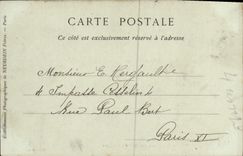 CARTE POSTALE
Ce côté est exclusivement réservé à l'adresse
Monsieur E.
4 Impasse
Rue Paul Bert
Paris XI
Établissements Photographiques de NEURDEIN Frères. — Paris